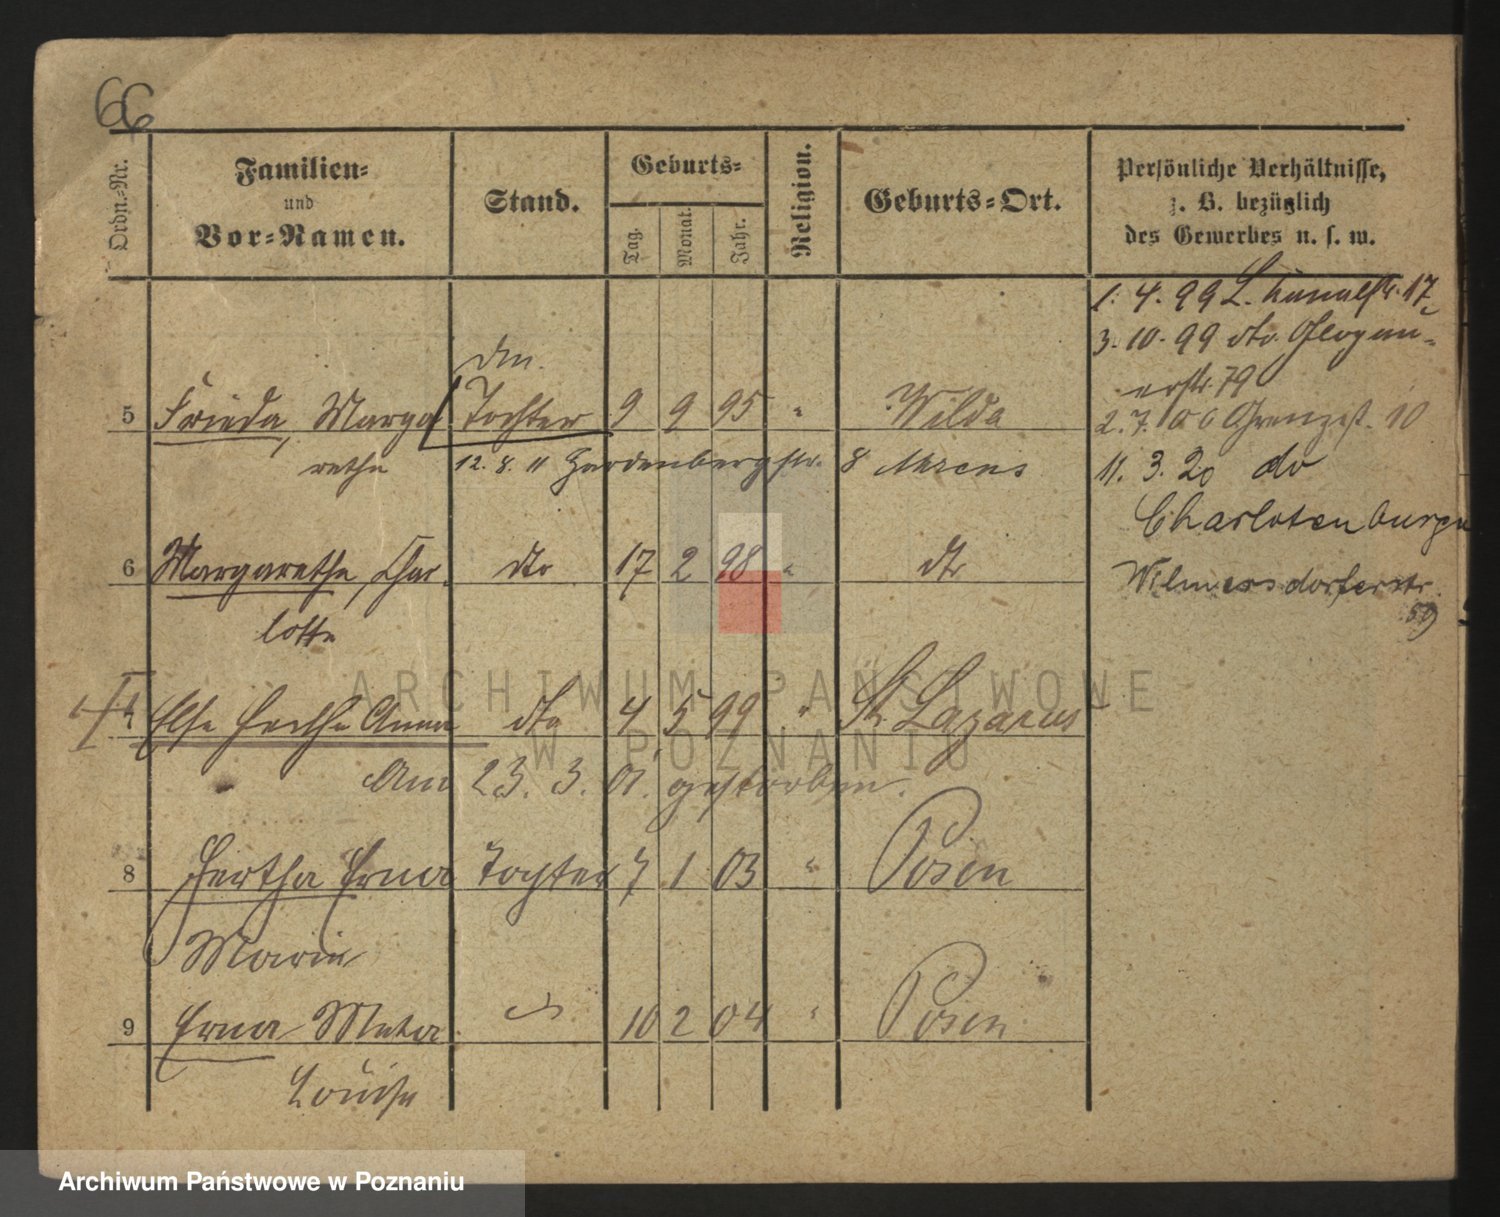 66
Ordn.-Nr. Familien- und Vor-Namen. Stand. Geburts- Tag. Monat. Jahr. Religion. Geburts-Ort. Persönliche Verhältnisse, z. B. bezüglich des Gewerbes u. s. w.
1. 4. 99 L. Kanalstr. 17
3. 10. 99 dto. Glogau-
erstr. 79
5 Frieda, Marga Tochter 9 9 95 " Wilda
2. 7. 00 Grenzst. 10
rethe 12. 8. 11 Hardenbergstr. 8 Ahrens
11. 3. 20 do
Charlotenburg
6 Margarethe, Char- dto 17 2 98 " dto
Wilmersdorferstr.
59
lotte
7 Else Herthe Anna dto 4 5 99 " St. Lazarus
Am 23. 3. 01. gestorben.
8 Hertha Erna Tochter 7 1 03 " Posen
Marie
9 Erna Meta 10 2 04 " Posen
Louise
ARCHIWUM PAŃSTWOWE
W POZNANIU
Archiwum Państwowe w Poznaniu